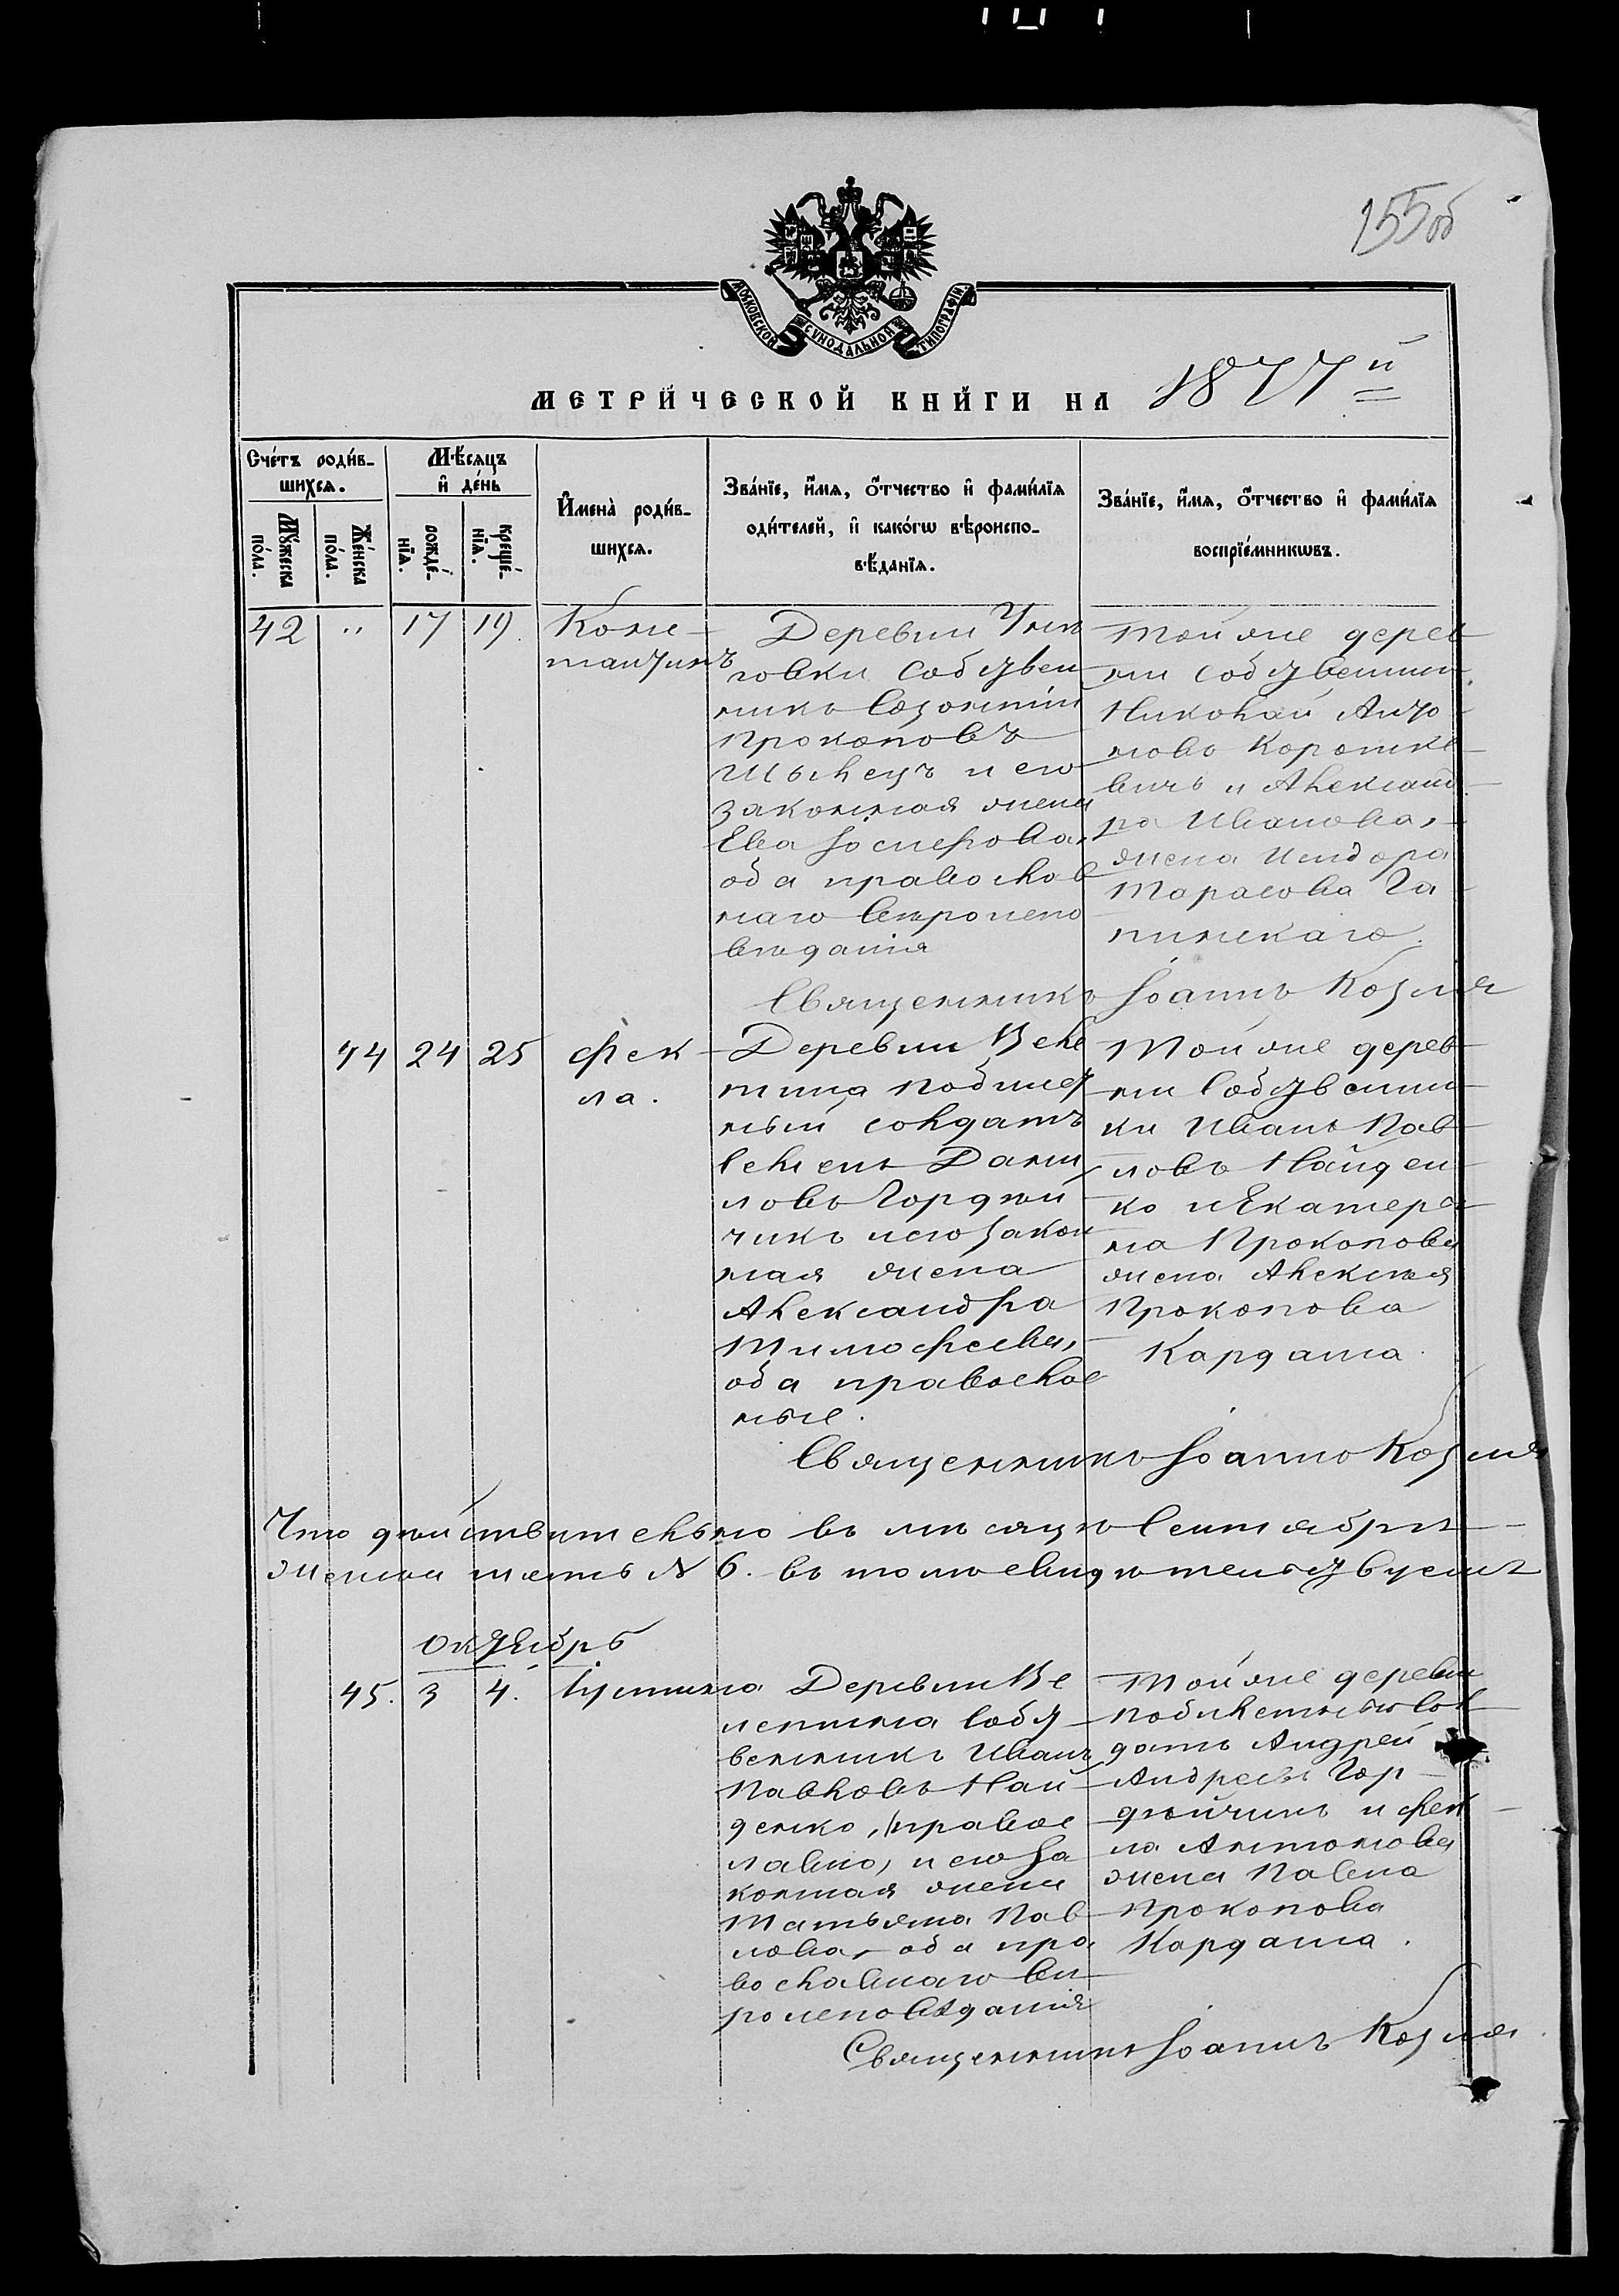 155об
МОСКОВСКОЙ СѴНОДАЛЬНОЙ ТИПОГРАФІИ
МЕТРИ́ЧЕСКОЙ КНИ́ГИ НА 1877й
Сче́тъ роди́в-
шихся.
Мꙋ́жеска
по́ла.
Же́нска
по́ла.
Мѣ́сяцъ
и҆ де́нь
рожде́-
нїѧ.
креще́-
нїѧ.
И҆мена̀ роди́в-
шихсѧ.
Зва́нїе, и҆́мѧ, ѻ҆́тчество и҆ фами́лїѧ
оди́телей, и҆ како́гѡ вѣроиспо-
вѣ́данїѧ.
Зва́нїе, и҆́мѧ, ѻ҆́тчество и҆ фами́лїѧ
воспрїе́мникѡвъ.
42 " 17 19.
Конс-
тантинъ
Деревни
говки собствен
никъ Созонтій
Прокоповъ
и его
законная жена
Ева Іосифова,
оба православ
наго вѣроиспо
вѣданія
Той же дерев
ни собственники
Николай Анто
новъ Короткe
вичъ и Александ
ра Иванова,
жена Исидора
Тарасова Га
пинскаго.
Священникъ Іоаннъ Козля
44 24 25
Фек
ла.
Деревни Веле
тина побилет
ный солдатъ
Семенъ Дани
ловъ Гордѣй
чикъ и его закон
ная жена
Александра
Тимофеева,
оба православ
ные.
Той же дерев
ни собственни
ки Иванъ Пав
ловъ Найден
ко и Екатери
на Прокопова
жена Алексѣя
Прокопова
Кардаша.
Священникъ Іоаннъ Козля
Что дѣйствительно въ мѣсяцѣ Сентябрѣ
записана шесть № 6. въ томъ свидѣтельствуемъ
Октябрь
45. 3 4. Іустина
Деревни Ве
летина собст
венникъ Иванъ
Павловъ Най
денко, правос
лавно, и его за
конная жена
Татьяна Пав
лова, оба пра
вославнаго вѣ
роисповѣданія
Той же деревни
побилетный сол
датъ Андрей
Андреевъ Гор
дѣйчикъ и Фек
ла Антонова
жена Павла
Прокопова
Кардаша.
Священникъ Іоаннъ Козля